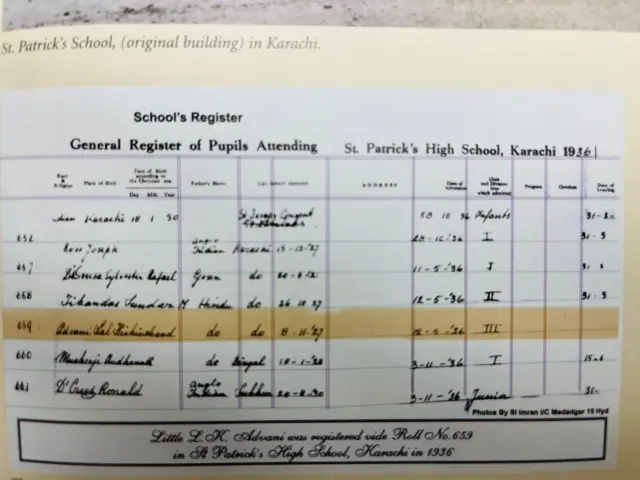 St. Patrick's School, (original building) in Karachi.
School's Register
General Register of Pupils Attending St. Patrick's High School, Karachi 1936
Race & Religion Place of Birth Date of Birth according to the Christian era. Father's Name Last School attended ADDRESS Date of Admission Class and Division into which admitted Progress Conduct Date of Leaving
Day Mth Year
Karachi 18 1 30 St Joseph Convent 28 10 36 Infants
Joseph Anglo Indian Karachi 15-12-'27 I 31-3
657 Sylvester Goan do 11-5-'36 I
658 Tikandas Sundar M Hindu do 26 10 27 12-5-'36 II 31-3
659 Advani Lal Kishinchand do do 8-11-'27 12-5-'36 III
660 Mukerji do 3-11-'36 I 15-6
661 D'Cruz Ronald Anglo Indian Sukkur 3-11-'36 Junior 31-
Photos By SI Imran I/C Madadgar 15 Hyd
Little L.K. Advani was registered vide Roll No.659
in St Patrick's High School, Karachi in 1936